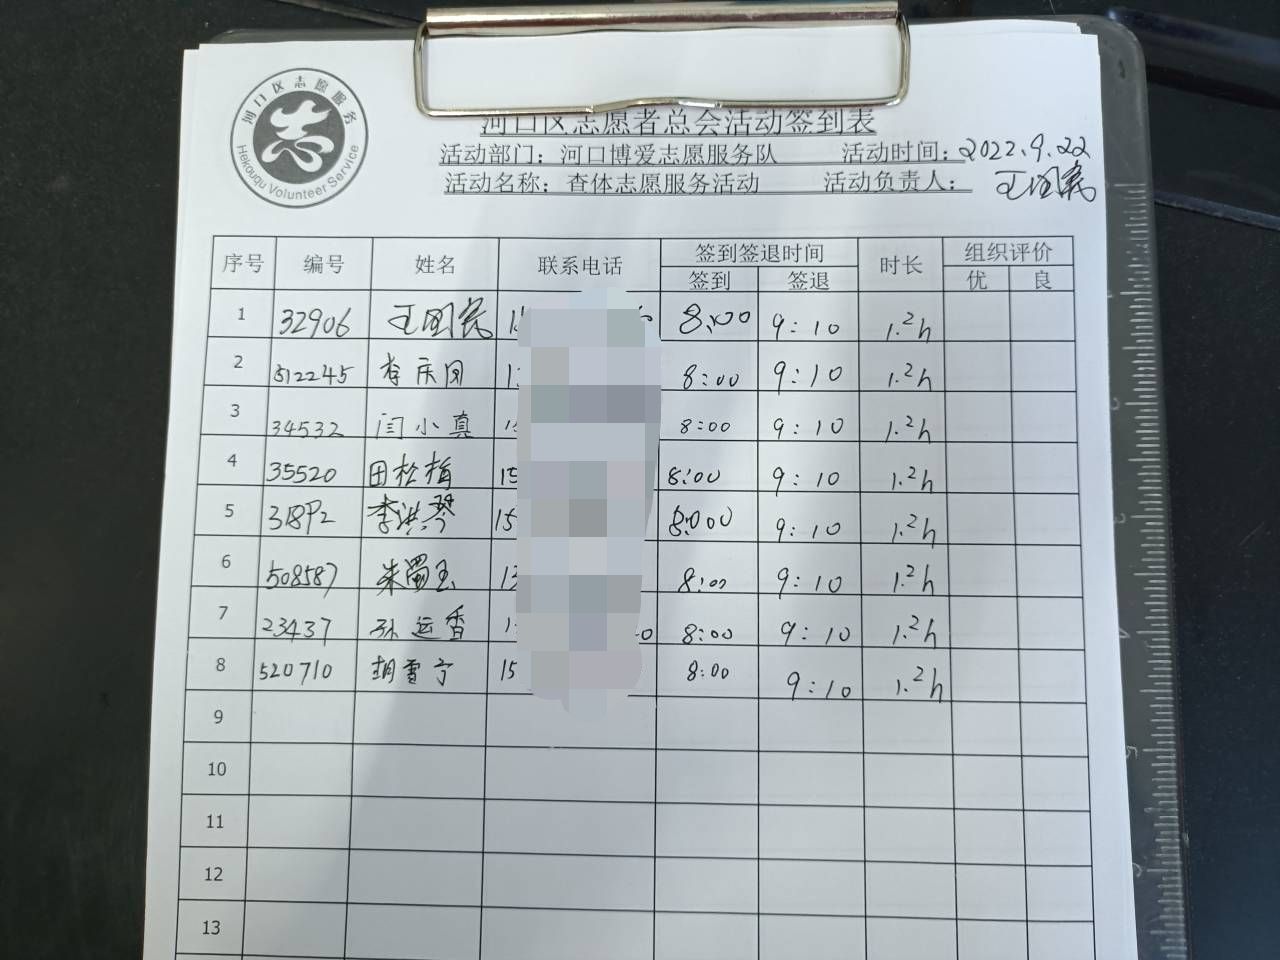 河口区志愿服务
志
Hekouqu Volunteer Service
河口区志愿者总会活动签到表
活动部门：河口博爱志愿服务队 活动时间：2022.9.22
活动名称：查体志愿服务活动 活动负责人：王国宾
序号 编号 姓名 联系电话 签到签退时间 时长 组织评价
签到 签退 优 良
1 32906 王国宾 8:00 9:10 1.2h
2 512245 李庆团 13 8:00 9:10 1.2h
3 34532 闫小真 8:00 9:10 1.2h
4 35520 田松梅 15 8:00 9:10 1.2h
5 318P2 李洪琴 15 8:00 9:10 1.2h
6 508587 朱蜀玉 13 8:00 9:10 1.2h
7 23437 孙运香 8:00 9:10 1.2h
8 520710 胡雪宁 15 8:00 9:10 1.2h
9
10
11
12
13